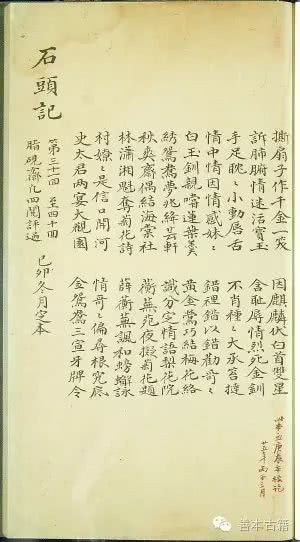 此本照庚辰本校訖
廿五年丙子三月
撕扇子作千金一笑 因麒麟伏白首雙星
訴肺腑情迷活寶玉 含耻辱情烈死金釧
手足眈〻小動唇舌 不肖種〻大承笞撻
情中情因情感妹〻 錯裡錯以錯勸哥〻
白玉釧親嚐蓮葉羹 黃金鶯巧結梅花絡
綉鴛鴦夢兆絳芸軒 識分定情語梨花院
秋爽齋偶結海棠社 蘅蕪苑夜擬菊花題
林瀟湘魁奪菊花詩 薛蘅蕪諷和螃蟹詠
村嫽〻是信口開河 情哥〻偏尋根究底
史太君兩宴大觀園 金鴛鴦三宣牙牌令
第三十一回 至四十回
脂硯齋凡四閱評過 己卯冬月定本
石頭記
善本古籍